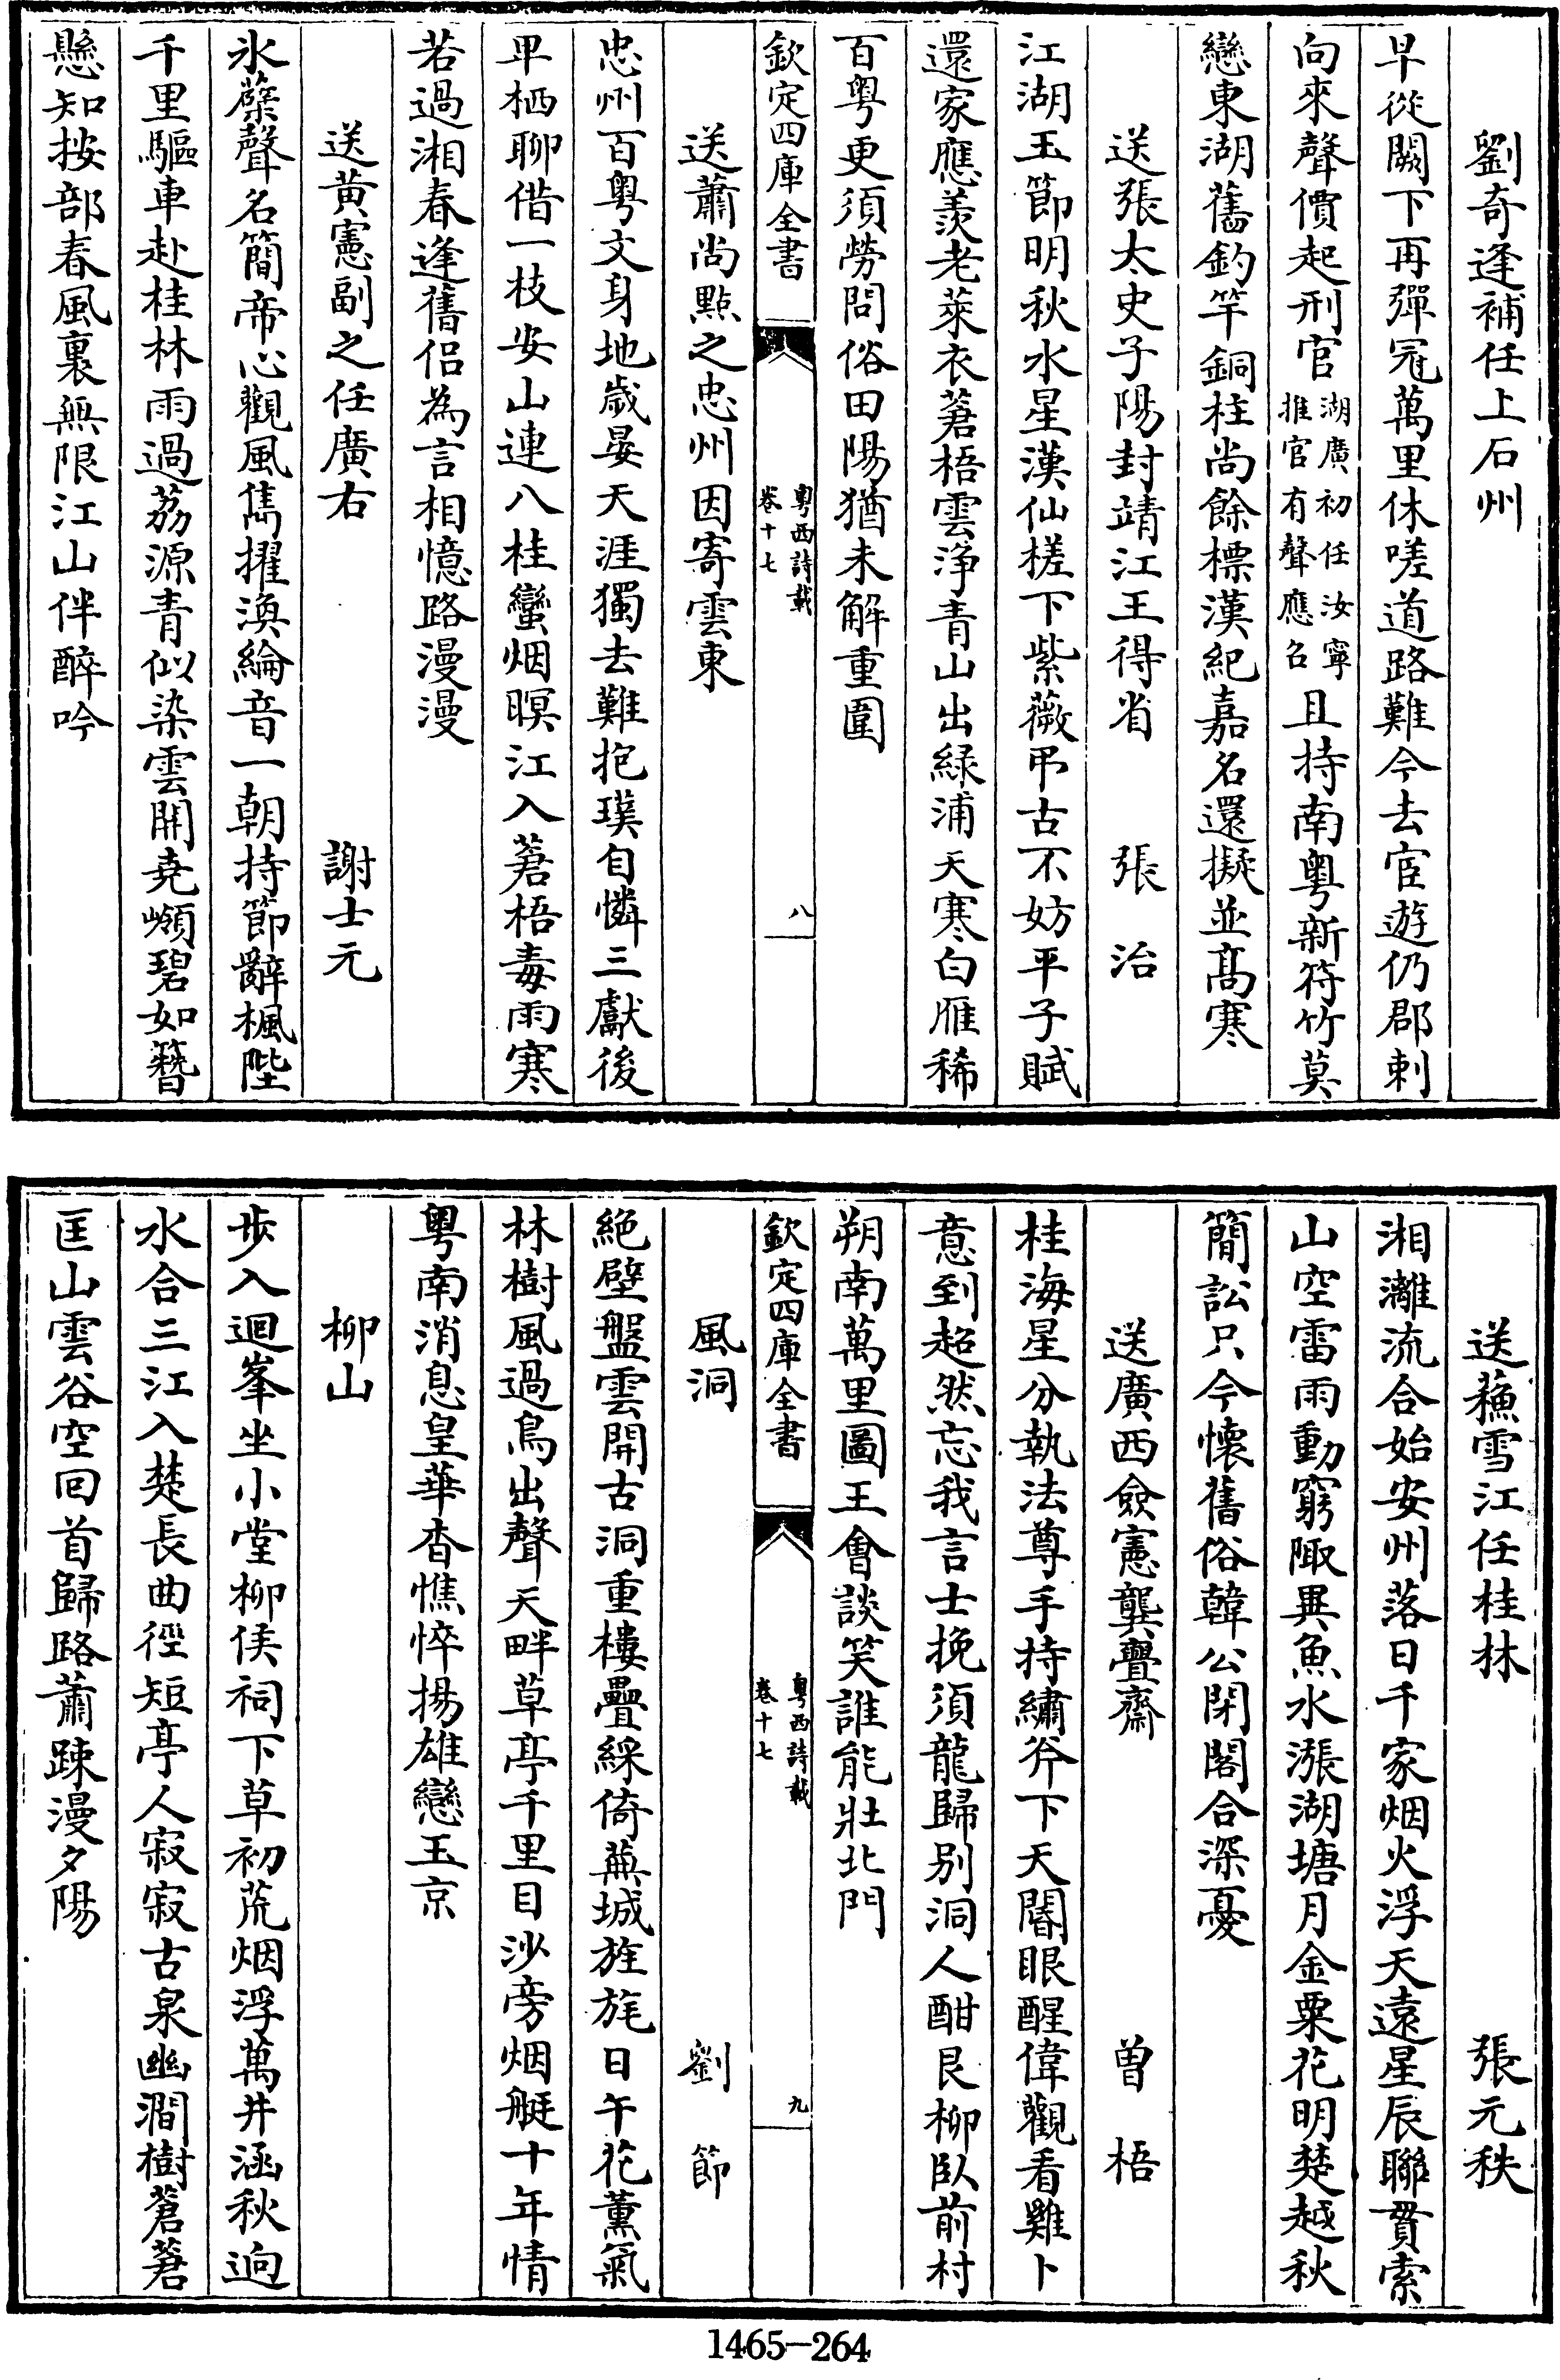 劉奇逢補任上石州
早從闕下再彈冠萬里休嗟道路難今去宦遊仍郡刺
向來聲價起刑官湖廣初任汝寧推官有聲應名且持南粵新符竹莫
戀東湖舊釣竿銅柱尚餘標漢紀嘉名還擬並髙寒
送張太史子陽封靖江王得省 張治
江湖玉節明秋水星漢仙槎下紫薇弔古不妨平子賦
還家應羨老萊衣蒼梧雲淨青山出緑浦天寒白雁稀
百粵更須勞問俗田陽猶未解重圍
欽定四庫全書 粵西詩載卷十七 八
送蕭尚點之忠州因寄雲東
忠州百粵文身地嵗晏天涯獨去難抱璞自憐三獻後
卑栖聊借一枝安山連八桂蠻烟暝江入蒼梧毒雨寒
若過湘春逢舊侣為言相憶路漫漫
送黄憲副之任廣右 謝士元
氷蘖聲名簡帝心觀風雋擢渙綸音一朝持節辭楓陛
千里驅車赴桂林雨過荔源青似染雲開堯嶺碧如簪
懸知按部春風裏無限江山伴醉吟
送蘓雪江任桂林 張元秩
湘灕流合始安州落日千家烟火浮天遠星辰聯貫索
山空雷雨動窮陬異魚水漲湖塘月金粟花明楚越秋
簡訟只今懷舊俗韓公閉閣合深憂
送廣西僉憲龔亹齋 曽梧
桂海星分執法尊手持繡斧下天閽眼醒偉觀看雞卜
意到超然忘我言士挽須龍歸别洞人酣艮柳臥前村
朔南萬里圖王會談笑誰能壯北門
欽定四庫全書 粵西詩載卷十七 九
風洞 劉節
絶壁盤雲開古洞重樓疊綵倚蕪城旌旄日午花薫氣
林樹風過鳥出聲天畔草亭千里目沙旁烟艇十年情
粵南消息皇華杳憔悴揚雄戀玉京
柳山
歩入迴峯坐小堂柳侯祠下草初荒烟浮萬井涵秋逈
水合三江入楚長曲徑短亭人寂寂古泉幽澗樹蒼蒼
匡山雲谷空回首歸路蕭踈漫夕陽
1465-264